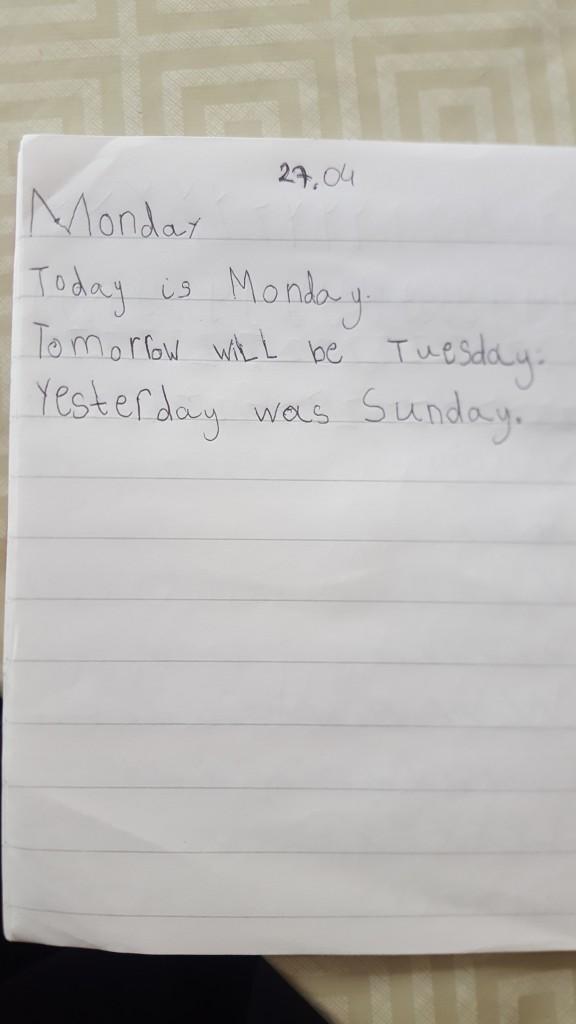 27.04
Monday
Today is Monday.
Tomorrow will be Tuesday.
Yesterday was Sunday.